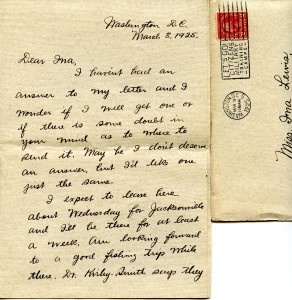 Washington D.C.
March 8, 1925.
Dear Ima,
I havent had an
answer to my letter and I
wonder if I will get one or
if there is some doubt in
your mind as to where to
send it. May be I don't deserve
an answer, but I'd like one
just the same.
I expect to leave here
about Wednesday for Jacksonville
and I'll be there for at least
a week, Am looking forward
to a good fishing trip while
there. Dr. Kirby-Smith says they
LET'S GO!
CITIZENS
TRAINING
CAMPS
Miss Ima Lewis,